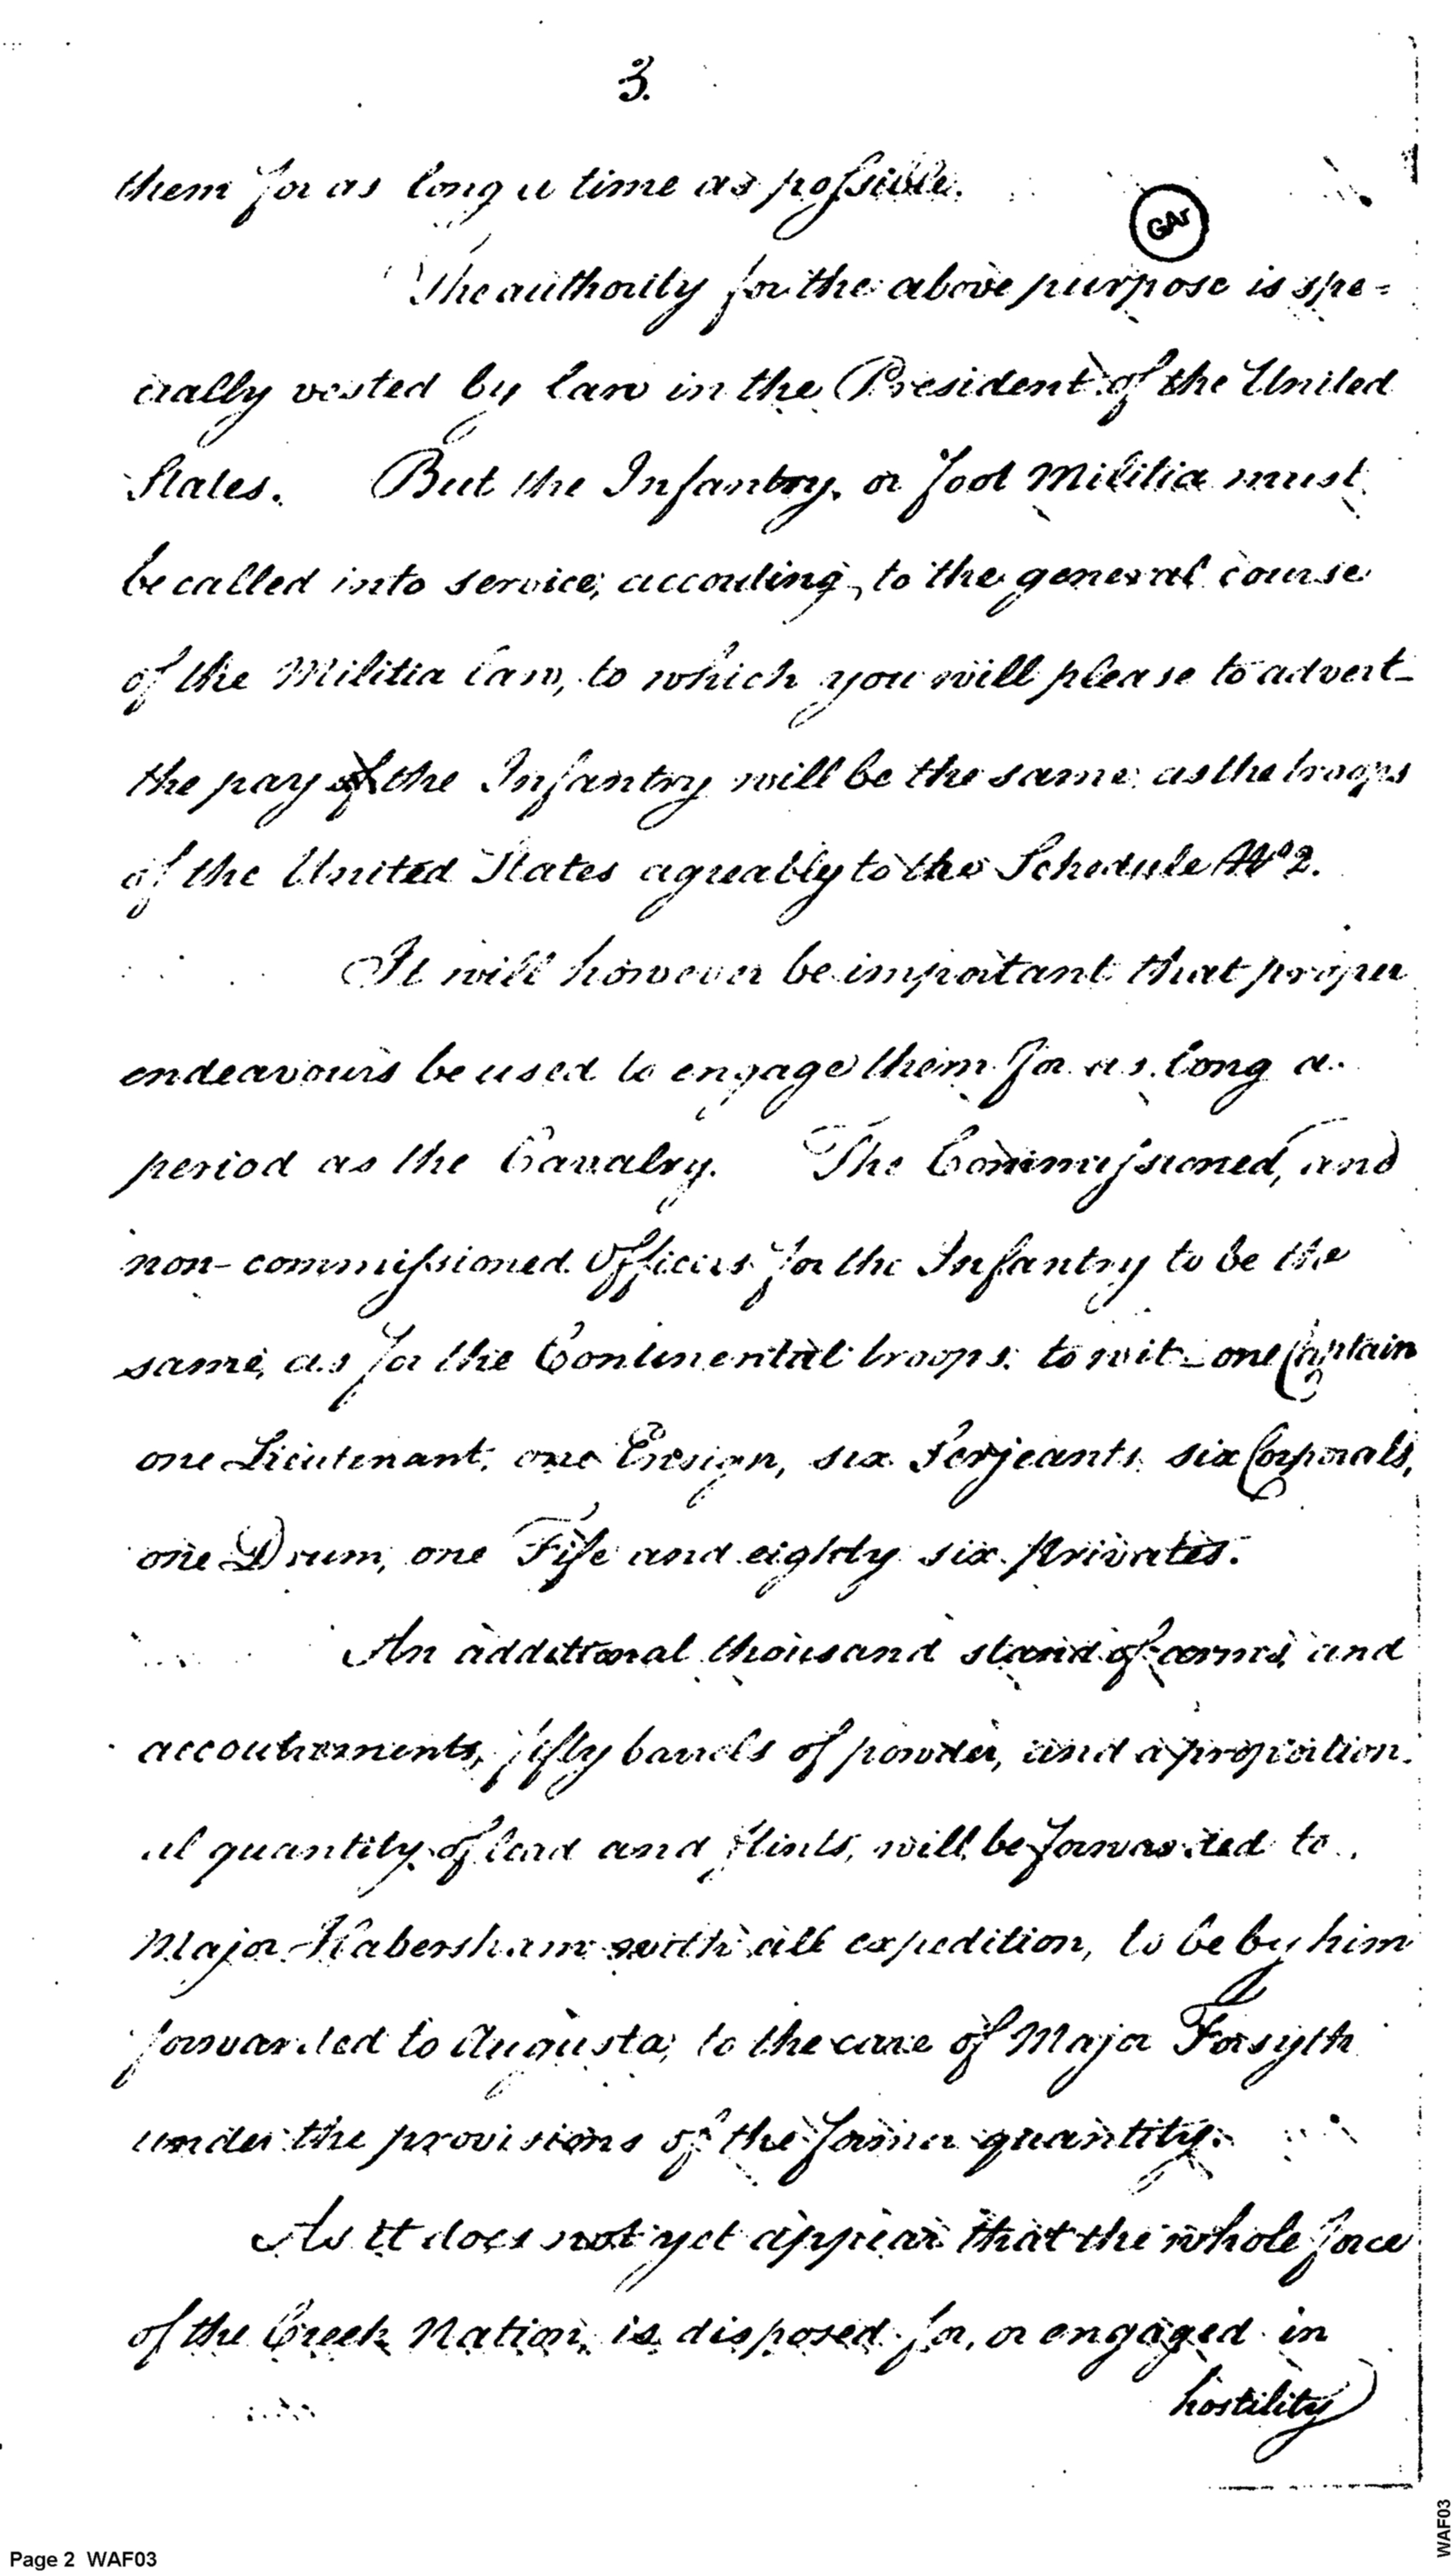 3.
them for as long a time as possible.
GAr
The authority for the above purpose is spe=
cially vested by law in the President of the United
States. But the Infantry, or foot Militia must
be called into service, according, to the general course
of the Militia law, to which you will please to advert_
the pay of the Infantry will be the same as the troops
of the United States agreably to the Schedule No 2.
It will however be important that proper
endeavours be used to engage them for as long a
period as the Cavalry. The Commissioned, and
non-commissioned officers for the Infantry to be the
same, as for the Continental troops. to wit_one Captain
one Lieutenant, one Ensign, six Serjeants six Corporals,
one Drum, one Fife and eighty six privates.
An additional thousand stand of arms, and
accoutrements, fifty barrels of powder, and a proportion.
al quantity of lead and flints, will be forwarded to
Major Habersham with all expedition, to be by him
forwarded to Augusta, to the care of Major Forsyth
under the provisions of the former quantity.
As it does not yet appear that the whole force
of the Creek Nation, is disposed for, or engaged in
hostility
Page 2 WAF03
WAF03